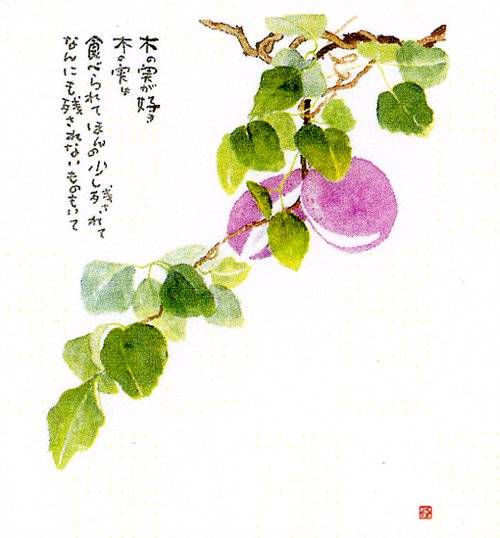 木の実が好き
木の実は
食べられてほんの少し残されて
なんにも残されないものもいて